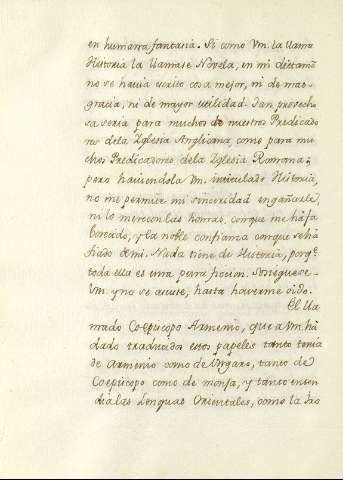 en humana fantasia. Si como Vm. la llama
Historia la llamase Novela, en mi dictamẽ
no se havia escrito cosa mejor, ni de mas
gracia, ni de mayor utilidad. Tan provecho
sa seria para muchos de nuestros Predicado
res dela Yglesia Anglicana, como para mu
chos Predicadores dela Yglesia Romana;
pero haviendola Vm. intitulado Historia,
no me permite mi sinceridad engañarle,
ni lo merecen las honras, conque me há fa
borecido, y la noble confianza conque se há
fiado de mi. Nada tiene de Historia, porq.e
toda ella es una pura ficcion. Sosieguese
Vm. y no se asuste, hasta haverme oido.
El lla
mado Co-episcopo Armenio, que a Vm. há
dado traducidos estos papeles tanto tenia
de Armenio como de Ungaro, tanto de
Coepiscopo como de monja, y tanto enten
dia las Lenguas Orientales, como la